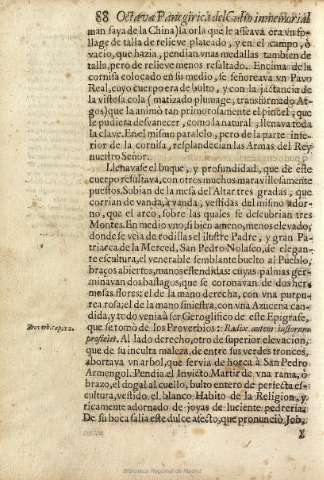 88 Octava Panegirica del Culto inmemorial
man saya de la China) la orla que le asseava era vn fo-
llage de talla de relieve plateado, y en el campo, ò
vacio, que hazia, pendian vnas medallas tambien de
talla, pero de relieve menos resaltado. Encima de la
cornisa colocado en su medio, se señoreava vn Pavo
Real, cuyo cuerpo era de bulto, y con la jactancia de
la vistosa cola (matizado plumage, transformado Ar-
gos) que la animò tan primorosamente el pincel, que
le pudiera desvanecer, como la natural; llenava toda
la clave. En el mismo paralelo, pero de la parte infe-
rior de la cornisa, resplandecian las Armas del Rey
nuestro Señor.
Llenavase el buque, y profundidad, que de este
cuerpo resultava, con otros muchos maravillosamente
puestos. Subian de la mesa del Altar tres gradas, que
corrian de vanda, à vanda, vestidas del mismo ador-
no, que el arco, sobre las quales se descubrian tres
Montes. En medio vno, si bien ameno, menos elevado,
donde se veia de rodillas el Ilustre Padre, y gran Pa-
triarca de la Merced, San Pedro Nolasco, de elegan-
te escultura, el venerable semblante buelto al Pueblo,
braços abiertos, manos estendidas: cuyas palmas ger-
minavan dos bastagos, que se coronavan de dos her-
mosas flores; el de la mano derecha, con vna purpu-
rea rosa; el de la mano siniestra, con vna Azucena can-
dida, y todo venia à ser Geroglifico de este Epigrafe,
que se tomò de los Proverbios: Radix autem iustorum
proficiet. Al lado derecho, otro de superior elevacion,
que de su inculta maleza, de entre sus verdes troncos,
abortava vn arbol, que servia de horca à San Pedro
Armengol. Pendia el Invicto Martir de vna rama, ò
brazo, el dogal al cuello, bulto entero de perfecta es-
cultura, vestido el blanco Habito de la Religion, y
ricamente adornado de joyas de luciente pedreria.
De su boca salia este dulce afecto, que pronunciò Job,
X
Biblioteca Regional de Madrid